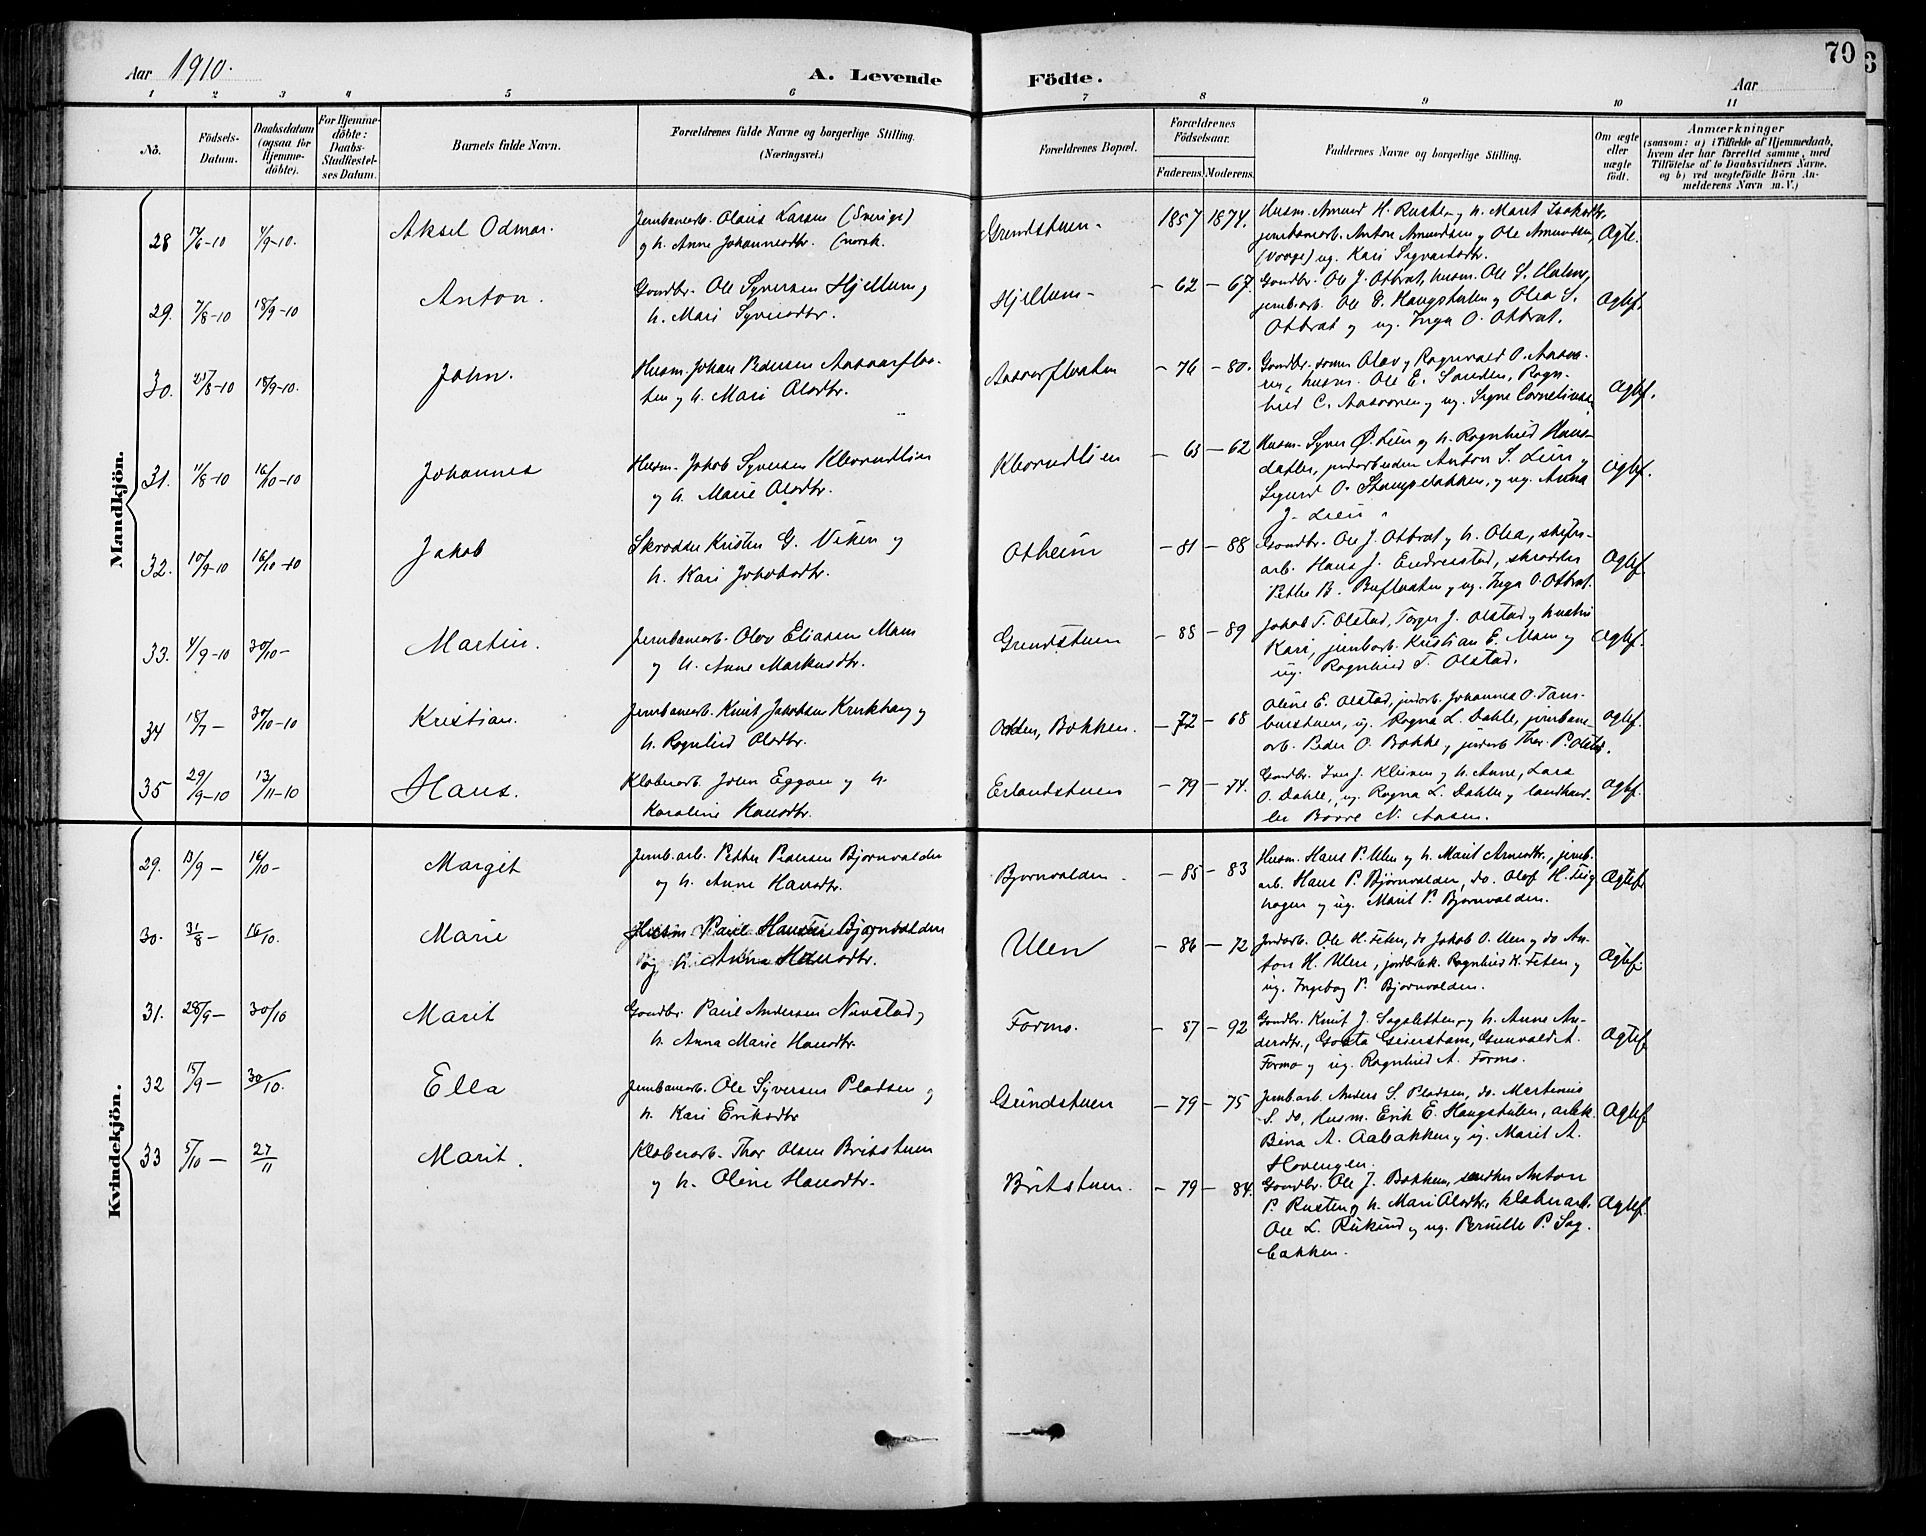 Aar 1910.
A. Levende Födte.
Aar
70
3
1 2 3 4 5 6 7 8 9 10 11
No.
Födsels-Datum.
Daabsdatum (ogsaa for Hjemmedöbte).
For Hjemmedöbte: Daabs-Stadfæstelses Datum.
Barnets fulde Navn.
Forældrenes fulde Navne og borgerlige Stilling. (Næringsvei.)
Forældrenes Bopæl.
Forældrenes Födselsaar.
Faderens. Moderens.
Faddernes Navne og borgerlige Stilling.
Om ægte eller uægte födt.
Anmærkninger
(saasom: a) i Tilfælde af Hjemmedaab, hvem der har forrettet samme, med Tilföielse af to Daabsvidners Navne, og b) ved uægtefödte Börn Anmelderens Navn m. V.)
Mandkjön.
28 4/9-10. Aksel Odmar.
Jernbanearb. Olaus Larsen (Sverige)
og h. Anne Johannesdtr. (norsk.
Grendstuen - 1857 1874.
Husm. Amund H. Rusten og h. Marit
jernbanearb. Anton Amundsen, Ole Amundsen,
ug. Kari Sigvartsdtr.
Ægte.
29. 7/8-10 18/9-10 Anton.
Gaardbr. Ole Syversen Hjellum og
h. Mari Syversdtr.
Hjellum - - 62 - 67.
Gaardbr. Ole J. Ottbrat, husm. Ole S.
jernbarb. Ole E. Haugstulen og Olea S.
Ottbrat og ug. Inga O. Ottbrat.
Ægtef.
30. 21/8-10 18/9-10. John.
Husm. Johan Pedersen Aasaarfloa-
ten og h. Mari Olsdtr.
Aasaarfloaten - 76 - 80.
Gaardbr. sønner Olav og Ragnvald O.
husm. Ole E. Sanden, Ragn-
hild C. Aasaaren og ug. Signe
Ægtef.
31. 11/8-10 16/10-10 Johannes
Husm. Jakob Syversen Kleivrudlien
og h. Marie Olsdtr.
Kleivrudlien - 63 - 62
Husm. Syver Ø. Lien og h. Ragnhild Hans-
datter, Anton S. Lien og
Sigurd O. og ug. Anna
J. Lien
Ægtef.
32. 10/9-10 16/10-10 Jakob
Skrædder Kristen G. Viken og
h. Kari Jakobsdtr.
Otheim - 81 - 88
Gaardbr. Ole J. Ottbrat og h. Olea, skifer-
arb. Hans J. Endrestad, skrædder
Petter B. og ug. Inga O. Ottbrat.
Ægtef.
33. 4/9-10 30/10- Martin.
Jernbanearb. Olav Eliasen Moen
og h. Anne Markusdtr.
Grindstuen - 88 - 89
Jakob T. Olstad, Torger J. Olstad og hustru
Kari, jernbarb. Kristian E. Moen og
ug. Ragnhild T. Olstad.
Ægtef.
34 18/7- 30/10-10 Kristian.
Jernbanearb. Knut Jakobsen Krukhaug og
h. Ragnhild Olsdtr.
Odden, Bakken. - 72 - 68
Oline E. Olstad, jordarb. Johannes O.
ug. Ragna L. Dahle, jernbane-
arb. Peder O. Bakke, jordarb Thor P. Olstad.
Ægtef.
35 29/9-10 13/11-10 Hans.
Kleberarb. John Eggen og h.
Karoline Hansdtr.
Erlandstuen - 79 - 74.
Gaardbr. Iver J. Kleiven og h. Anne, Lars
O. Dahle, ug. Ragna L. Dahle og landhand-
ler N. Aasen.
Ægtef.
Kvindekjön.
29. 13/9- 16/10- Margit
Jernb.arb. Petter Pedersen Bjørnvolden
og h. Anne Hansdtr.
Bjørnvolden - - 85 - 83
Husm. Hans P. Ulen og h. Marit Arnesdtr., jernb.
arb. Hans P. Bjørnvolden, do. Olaf H.
hagen og ug. Marit P. Bjørnvolden.
Ægtef.
30. 31/8- 16/10. Marie
Husm. Paul Hansen Bjørnvolden
og h. Anna Hansdtr.
Ulen - 86 - 72
Jordarb. Ole H. Feten, do Jakob O. Ulen og do An-
ton H. Ulen, Ragnhild K. Feten og
ug. Ingebog P. Bjørnvolden.
Ægtef.
31. 28/9- 30/10 Marit
Gaardbr. Paul Andersen og
h. Anna Marie Hansdtr.
Formo. - 87 - 92
Gaardbr. Knut J. Sagsletten og h. Anne An-
dersdtr., Gösta Geierstam, Gunvald A.
Formo og ug. Ragnhild A. Formo.
Ægtef.
32 15/9- 30/10. Ella
Jernbanearb. Ole Syversen Pladsen og
h. Kari Eriksdtr
Grindstuen - 79 - 75
Jernb.arb. Anders S. Pladsen, do. Martinius
S. do, Husm. Erik E. Haugstulen, arbk.
Bina A. Aabakken og ug. Marit A.
Hovengen.
Ægtef
33 5/10- 27/11 Marit.
Kleberarb. Thor Olsen Britstuen
og h. Oline Hansdtr.
Britstuen. - 79 - 84.
Gaardbr. Ole J. Bakken, snedker Anton
P. Rusten og h. Mari Olsdtr, kleberarb.
Ole L. og ug. Pernille P. Sag-
bakken.
Ægtef.